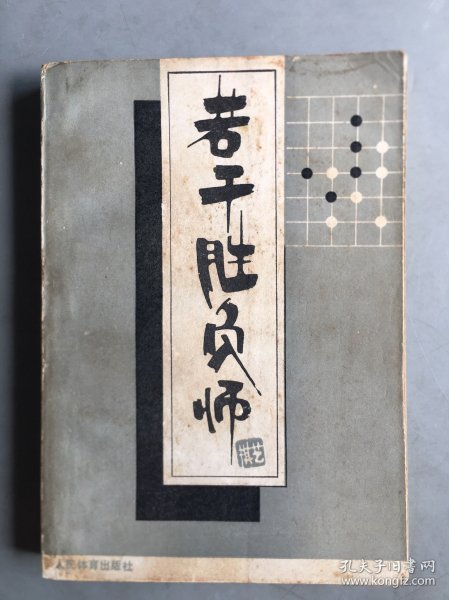 若干胜负师
棋艺
人民体育出版社
孔夫子旧书网
www.kongfz.com